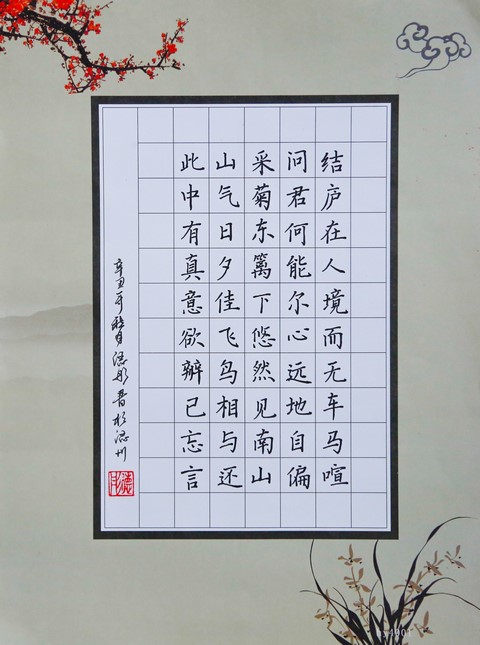 结庐在人境而无车马喧
问君何能尔心远地自偏
采菊东篱下悠然见南山
山气日夕佳飞鸟相与还
此中有真意欲辨已忘言
辛丑年秋月德书於温州